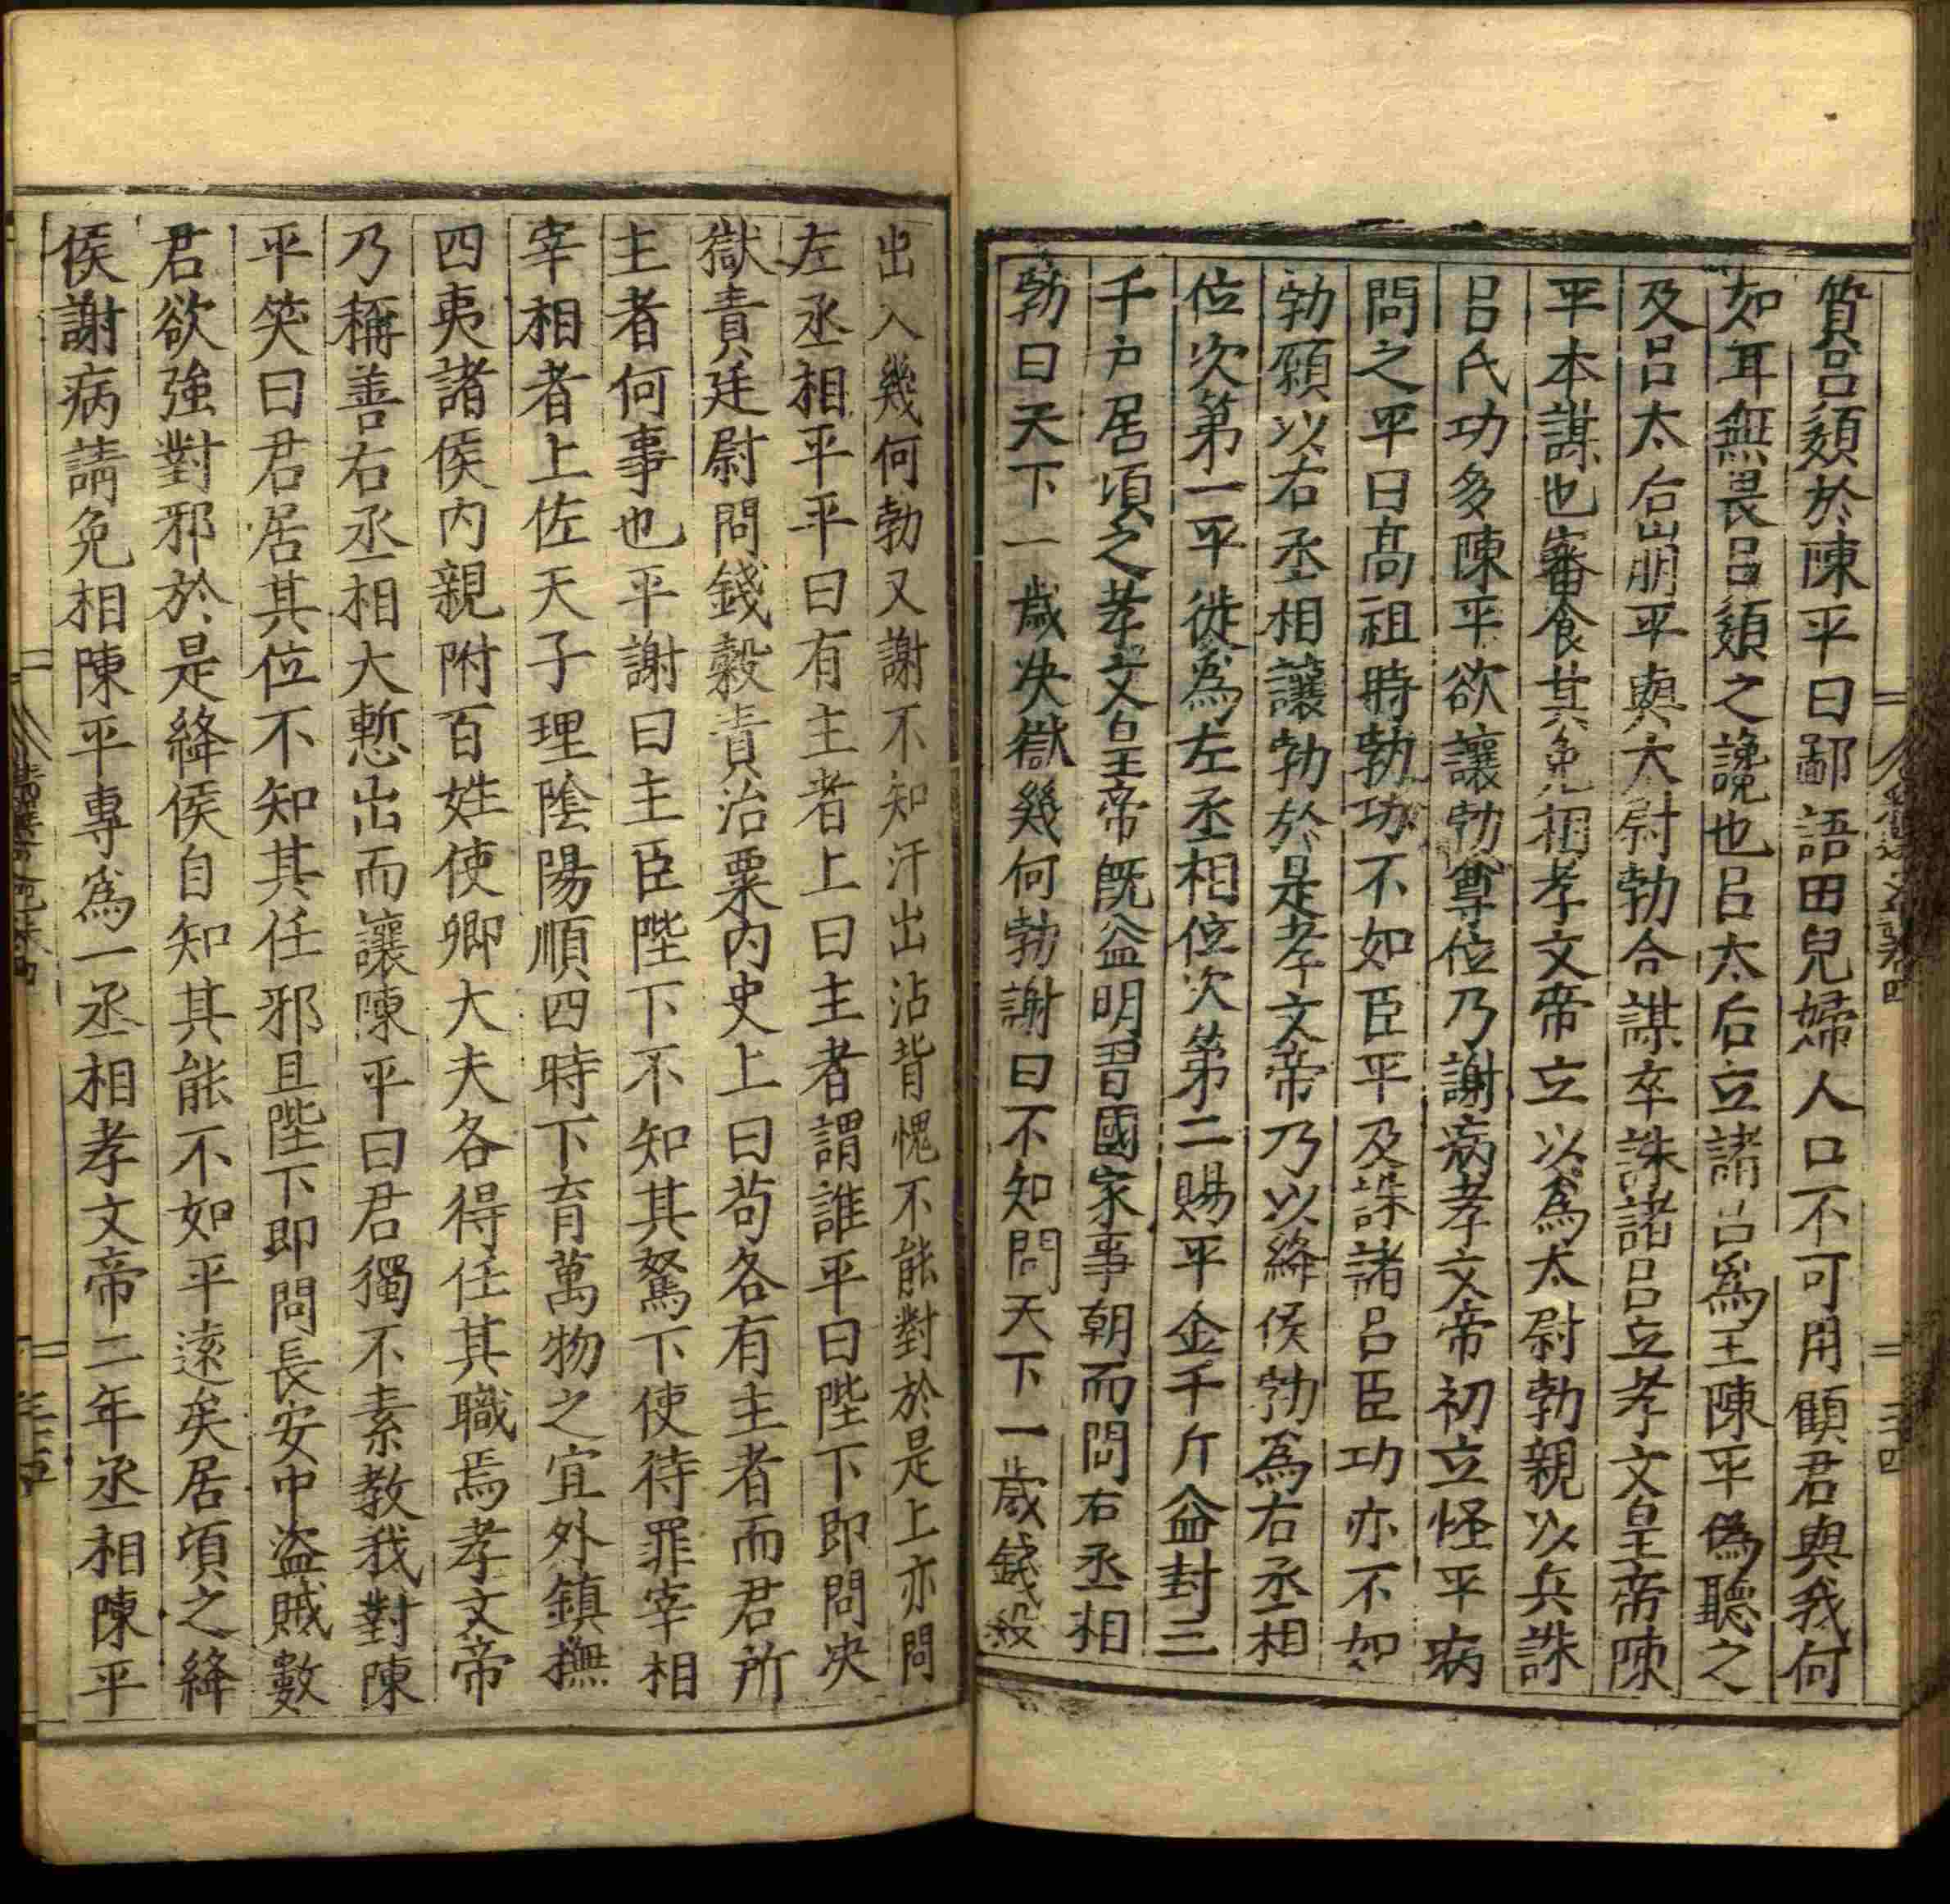 質呂顡於陳平曰鄙語曰兒婦人口不可用顧君與我何
如耳無畏呂顡之讒也呂太后立諸呂爲王陳平偽聽之
及呂太后崩平與太尉勃合謀卒誅諸呂立孝文皇帝陳
平本謀也審食其免相孝文帝立以爲太尉勃親以兵誅
呂氏功多陳平欲讓勃尊位乃謝病孝文帝初立怪平病
問之平曰高祖時勃功不如臣平及誅諸呂臣功亦不如
勃願以右丞相讓勃於是孝文帝乃以絳侯勃爲右丞相
位次第一平徙爲左丞相位次第二賜平金千斤益封三
千户居頃之孝文皇帝既益明習國家事朝而問右丞相
勃曰天下一歳决獄幾何勃謝曰不知問天下一歳錢糓
出入幾何勃又謝不知汗出沾背愧不能對於是上亦問
左丞相平平曰有主者上曰主者謂誰平曰陛下即問决
獄責廷尉問錢穀責治粟內史上曰茍各有主者而君所
主者何事也平謝曰主臣陛下不知其駑下使待罪宰相
宰相者上佐天子理陰陽順四時下育萬物之宜外鎮撫
四夷諸侯内親附百姓使卿大夫各得任其職焉孝文帝
乃稱善右丞相大慙出而讓陳平曰君獨不素教我對陳
平笑曰君居其位不知其任邪且陛下即問長安中盗賊數
君欲強對邪於是絳侯自知其能不如平遠矣居頃之絳
侯謝病請免相陳平專爲一丞相孝文帝二年丞相陳平